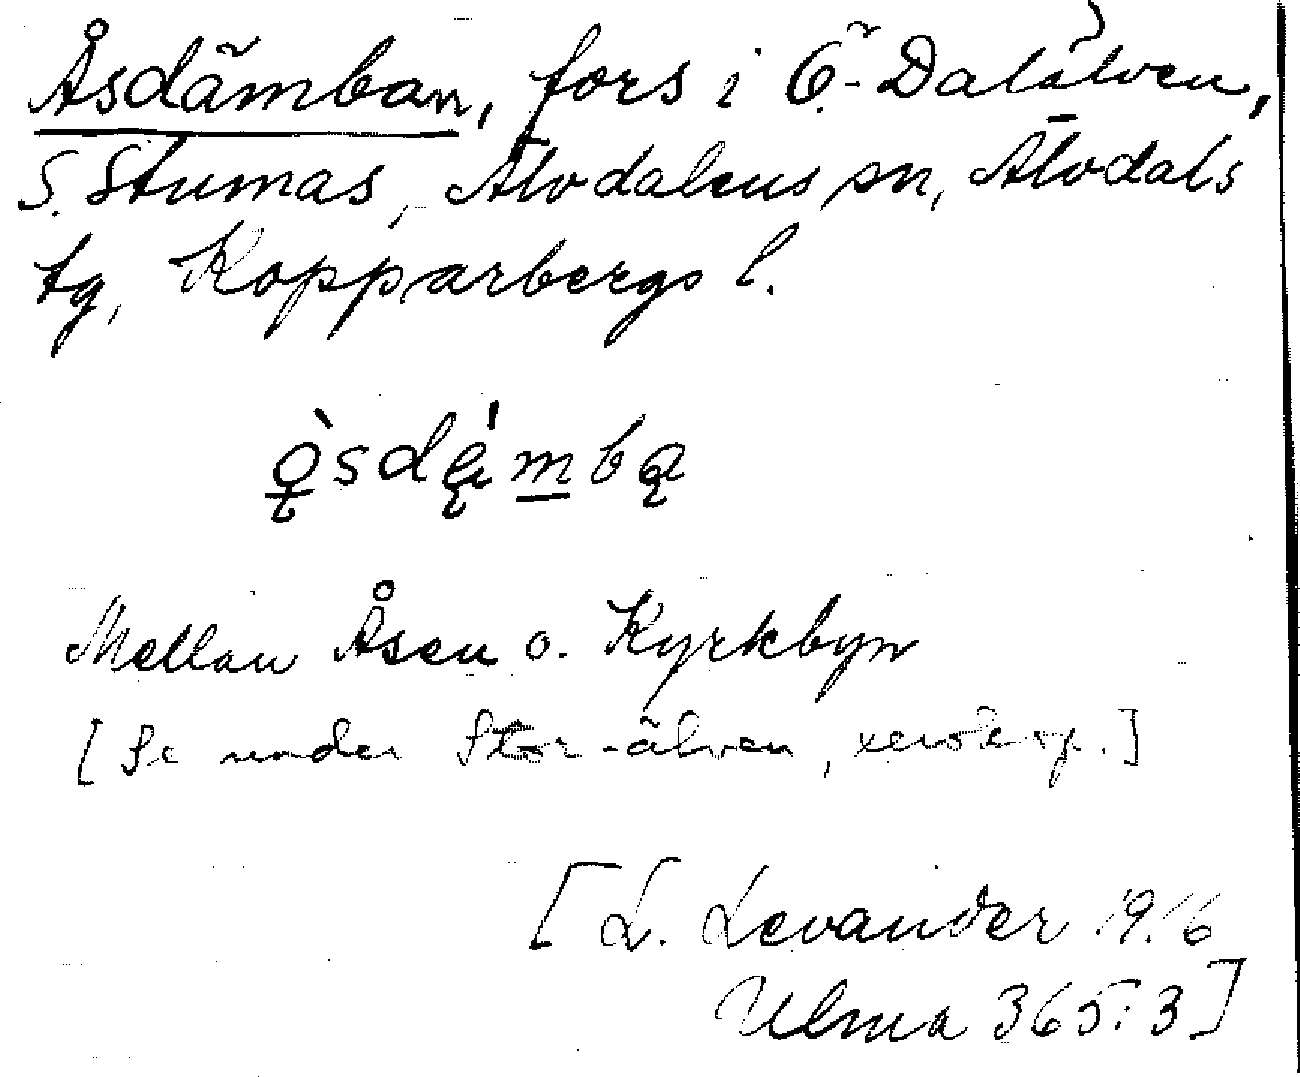 Åsdämban, fors i Ö.-Dalälven,
S. Stumas, Älvdalens sn, Älvdals
tg, Kopparbergs l.
ǫ̀sdą́mbą
Mellan Åsen o. Kyrkbyn
[Se under Stor-älven, xerokop.]
[L. Levander
Ulma 365:3]